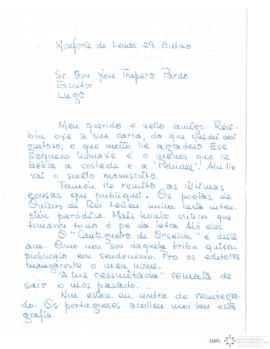 Monforte de Lemos 29. Outono
Sr. Don Xosé Trapero Pardo
Escritor
Lugo
Meu querido e vello amigo: Reci-
bín oxe a sua carta, da que quedei moi
gustoso, e que moito lle agradezo. Ese
pequeno homaxe é o menos que se
debía a vostede e a "Pelúdez". Ahí lle
vai o soneto manuscrito.
Tamén lle remito as últimas
cousas que publiquei. Os poetas de
Outeiro de Rei teñen unha certa inten-
ción paródica. Mais houbo críticos que
tomaron todo ó pe da letra. Aló eles.
O "Cantigueiro de Orcellón" é deste
ano. Como non son daquela tribu quixen
publicalo en seudónimo. Pro os editores
manganlle o meu nome.
"A luz resucitada" remata de
sair o mes pasado.
Non estou en contra do reintegra-
do. Os portugueses acollen moi ben esta
grafía.